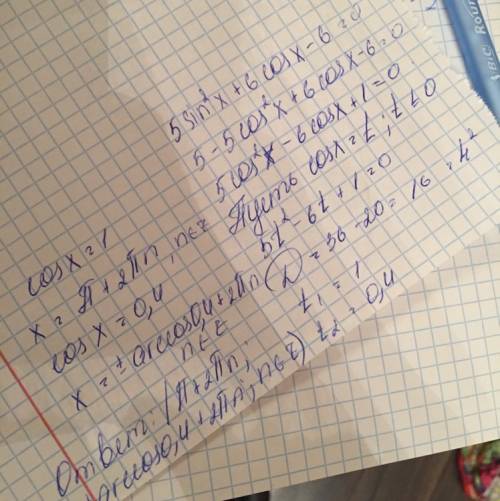 5 sin²x + 6 cosx - 6 = 0
5 - 5cos²x + 6cosx - 6 = 0
5cos²x - 6cosx + 1 = 0
Пусть cosx = t, t ⩾ 0
5t² - 6t + 1 = 0
D = 36 - 20 = 16 = 4²
t1 = 1
t2 = 0,4
cosx = 1
x = π + 2πn, n∈Z
cosx = 0,4
x = ± arccos0,4 + 2πn
n∈Z
Ответ: (π + 2πn;
arccos0,4 + 2πn, n∈Z)